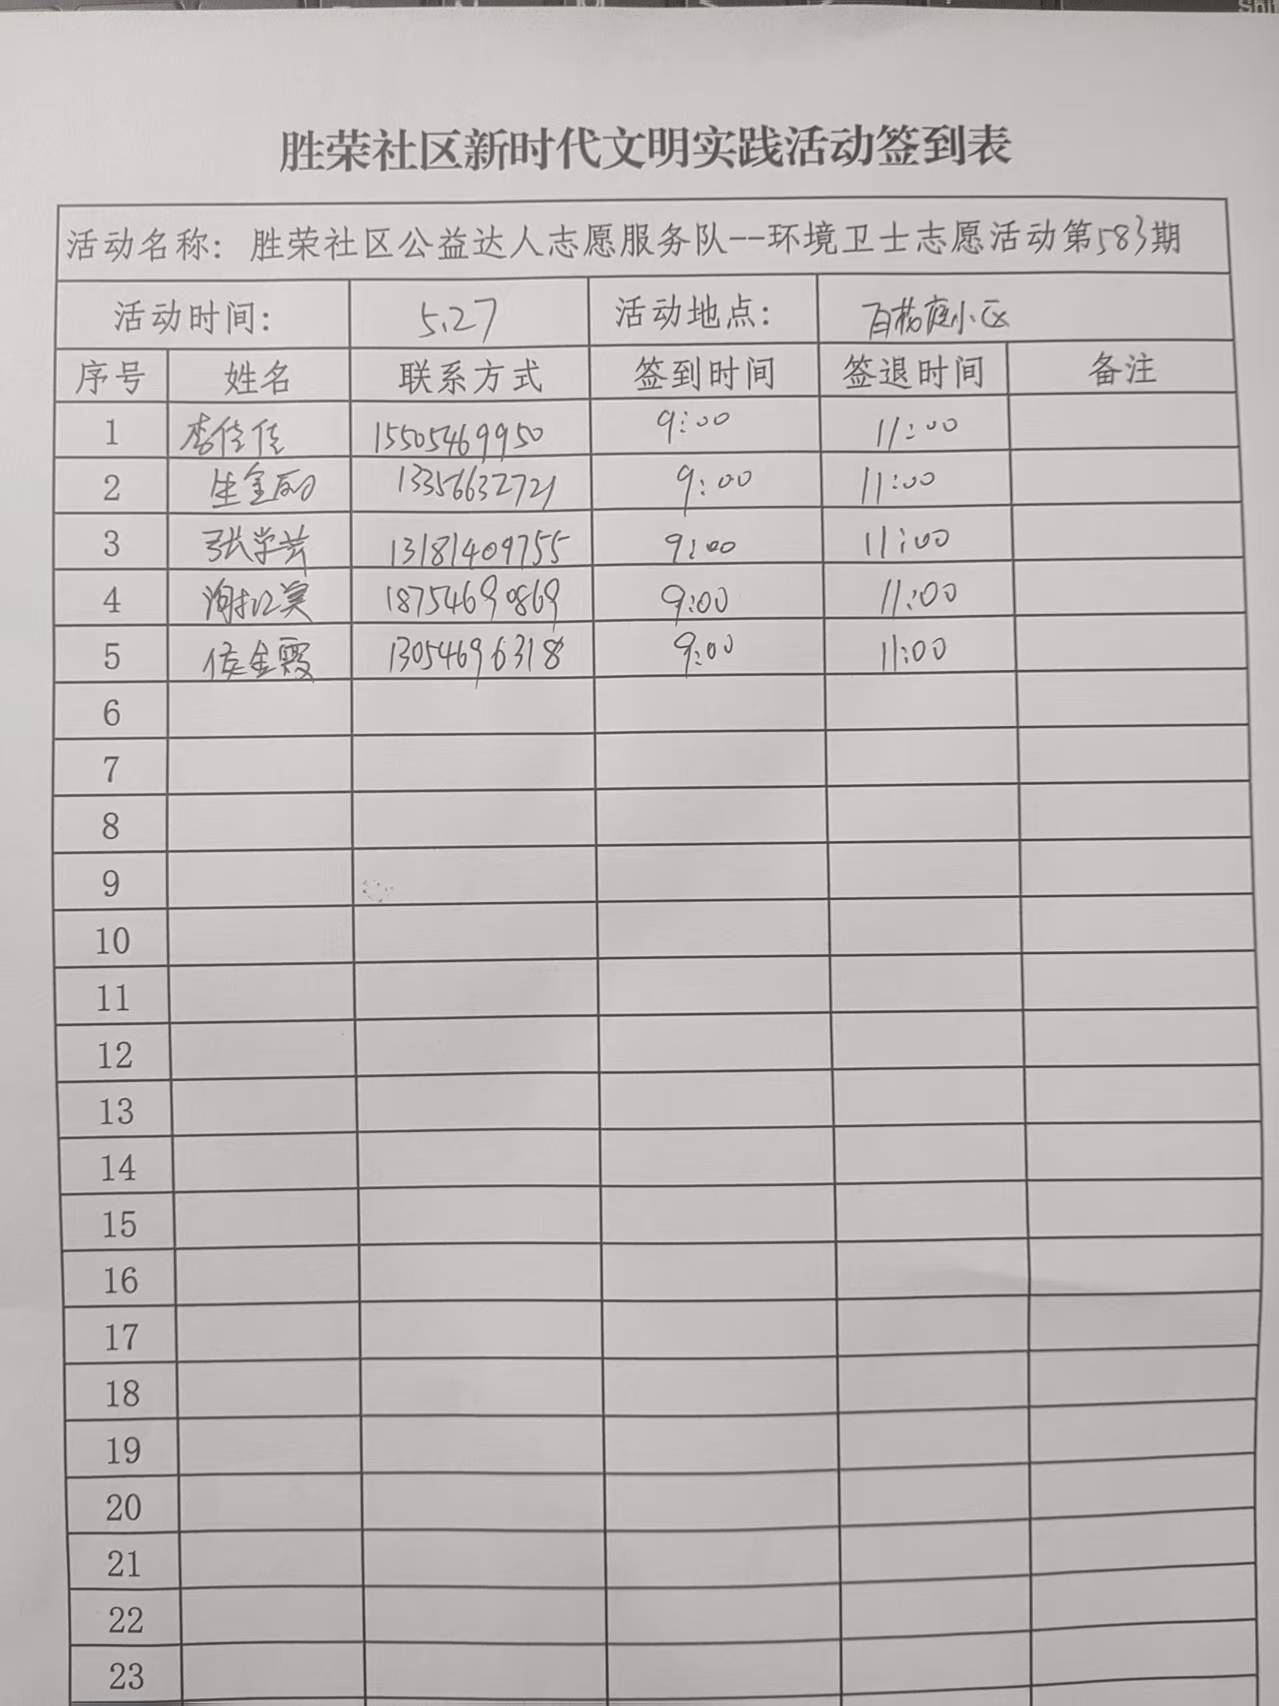 胜荣社区新时代文明实践活动签到表
活动名称: 胜荣社区公益达人志愿服务队--环境卫士志愿活动第583期
活动时间: 5.27 活动地点: 百杨庭小区
序号 姓名 联系方式 签到时间 签退时间 备注
1 李佳佳 15505469950 9:00 11:00
2 生金 13356632721 9:00 11:00
3 张学芳 13181409755 9:00 11:00
4 谢 18754690869 9:00 11:00
5 侯金霞 13054696318 9:00 11:00
6
7
8
9
10
11
12
13
14
15
16
17
18
19
20
21
22
23